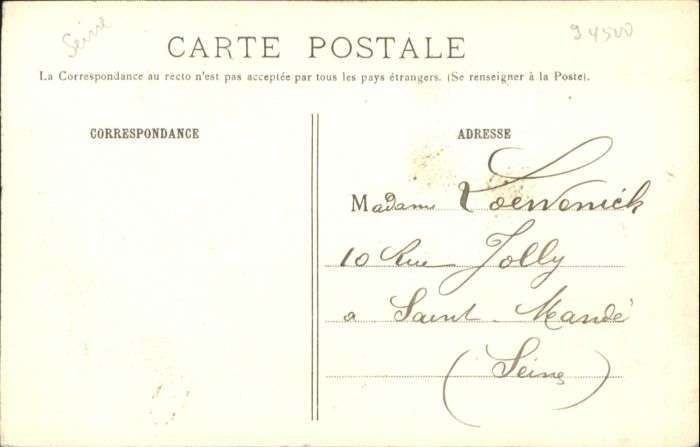 Seine
94500
CARTE POSTALE
La Correspondance au recto n'est pas acceptée par tous les pays étrangers. (Se renseigner à la Poste).
CORRESPONDANCE
ADRESSE
Madame Loewenick
10 Rue Jolly
a Saint-Mandé
(Seine)